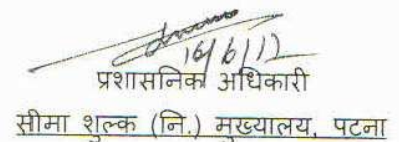 16/6/12
प्रशासनिक अधिकारी
सीमा शुल्क (नि.) मुख्यालय, पटना